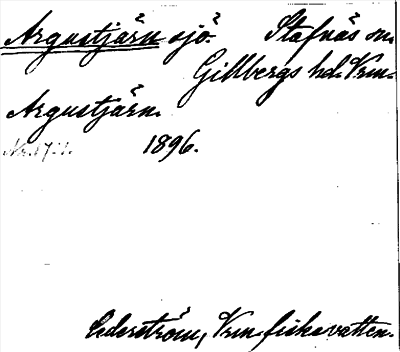 Argustjärn sjö. Stafnäs sn.
Gillbergs hd. Vrm.
Argustjärn.
1896.
Cederström, Vrm. fiskevatten.